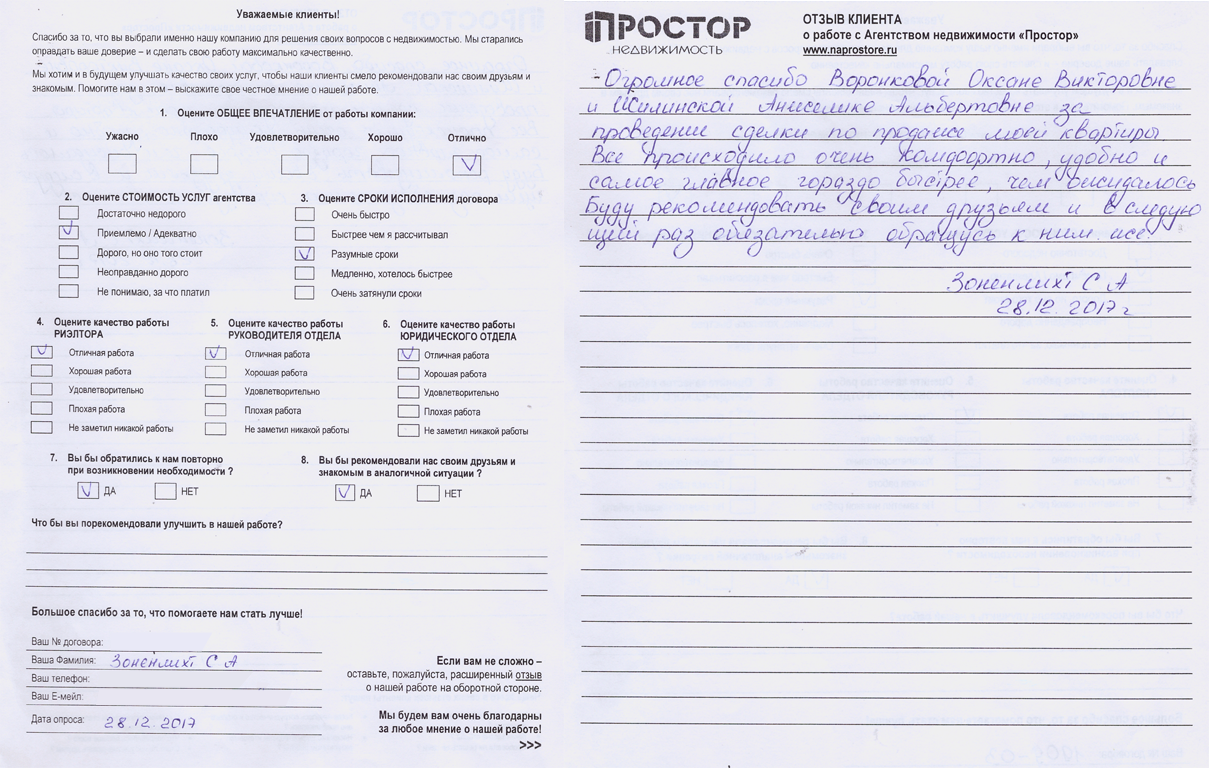 Уважаемые клиенты!
Спасибо за то, что вы выбрали именно нашу компанию для решения своих вопросов с недвижимостью. Мы старались
оправдать ваше доверие – и сделать свою работу максимально качественно.
Мы хотим и в будущем улучшать качество своих услуг, чтобы наши клиенты смело рекомендовали нас своим друзьям и
знакомым. Помогите нам в этом – выскажите свое честное мнение о нашей работе.
1. Оцените ОБЩЕЕ ВПЕЧАТЛЕНИЕ от работы компании:
Ужасно Плохо Удовлетворительно Хорошо Отлично
2. Оцените СТОИМОСТЬ УСЛУГ агентства
Достаточно недорого
Приемлемо / Адекватно
Дорого, но оно того стоит
Неоправданно дорого
Не понимаю, за что платил
3. Оцените СРОКИ ИСПОЛНЕНИЯ договора
Очень быстро
Быстрее чем я рассчитывал
Разумные сроки
Медленно, хотелось быстрее
Очень затянули сроки
4. Оцените качество работы
РИЭЛТОРА
Отличная работа
Хорошая работа
Удовлетворительно
Плохая работа
Не заметил никакой работы
5. Оцените качество работы
РУКОВОДИТЕЛЯ ОТДЕЛА
Отличная работа
Хорошая работа
Удовлетворительно
Плохая работа
Не заметил никакой работы
6. Оцените качество работы
ЮРИДИЧЕСКОГО ОТДЕЛА
Отличная работа
Хорошая работа
Удовлетворительно
Плохая работа
Не заметил никакой работы
7. Вы бы обратились к нам повторно
при возникновении необходимости ?
ДА НЕТ
8. Вы бы рекомендовали нас своим друзьям и
знакомым в аналогичной ситуации ?
ДА НЕТ
Что бы вы порекомендовали улучшить в нашей работе?
Большое спасибо за то, что помогаете нам стать лучше!
Ваш № договора:
Ваша Фамилия: Зоненлихт С А
Ваш телефон:
Ваш Е-мейл:
Дата опроса: 28.12.2017
Если вам не сложно –
оставьте, пожалуйста, расширенный отзыв
о нашей работе на оборотной стороне.
Мы будем вам очень благодарны
за любое мнение о нашей работе!
>>>
ПРОСТОР
НЕДВИЖИМОСТЬ
ОТЗЫВ КЛИЕНТА
о работе с Агентством недвижимости «Простор»
www.naprostore.ru
- Огромное спасибо Воронковой Оксане Викторовне
и Жилинской Анжелике Альбертовне за
проведение сделки по продаже моей квартиры
Все происходило очень комфортно, удобно и
самое главное гораздо быстрее, чем ожидалось
Буду рекомендовать своим друзьям и в следую
щий раз обязательно обращусь к ним же.
Зоненлихт С А
28.12.2017 г